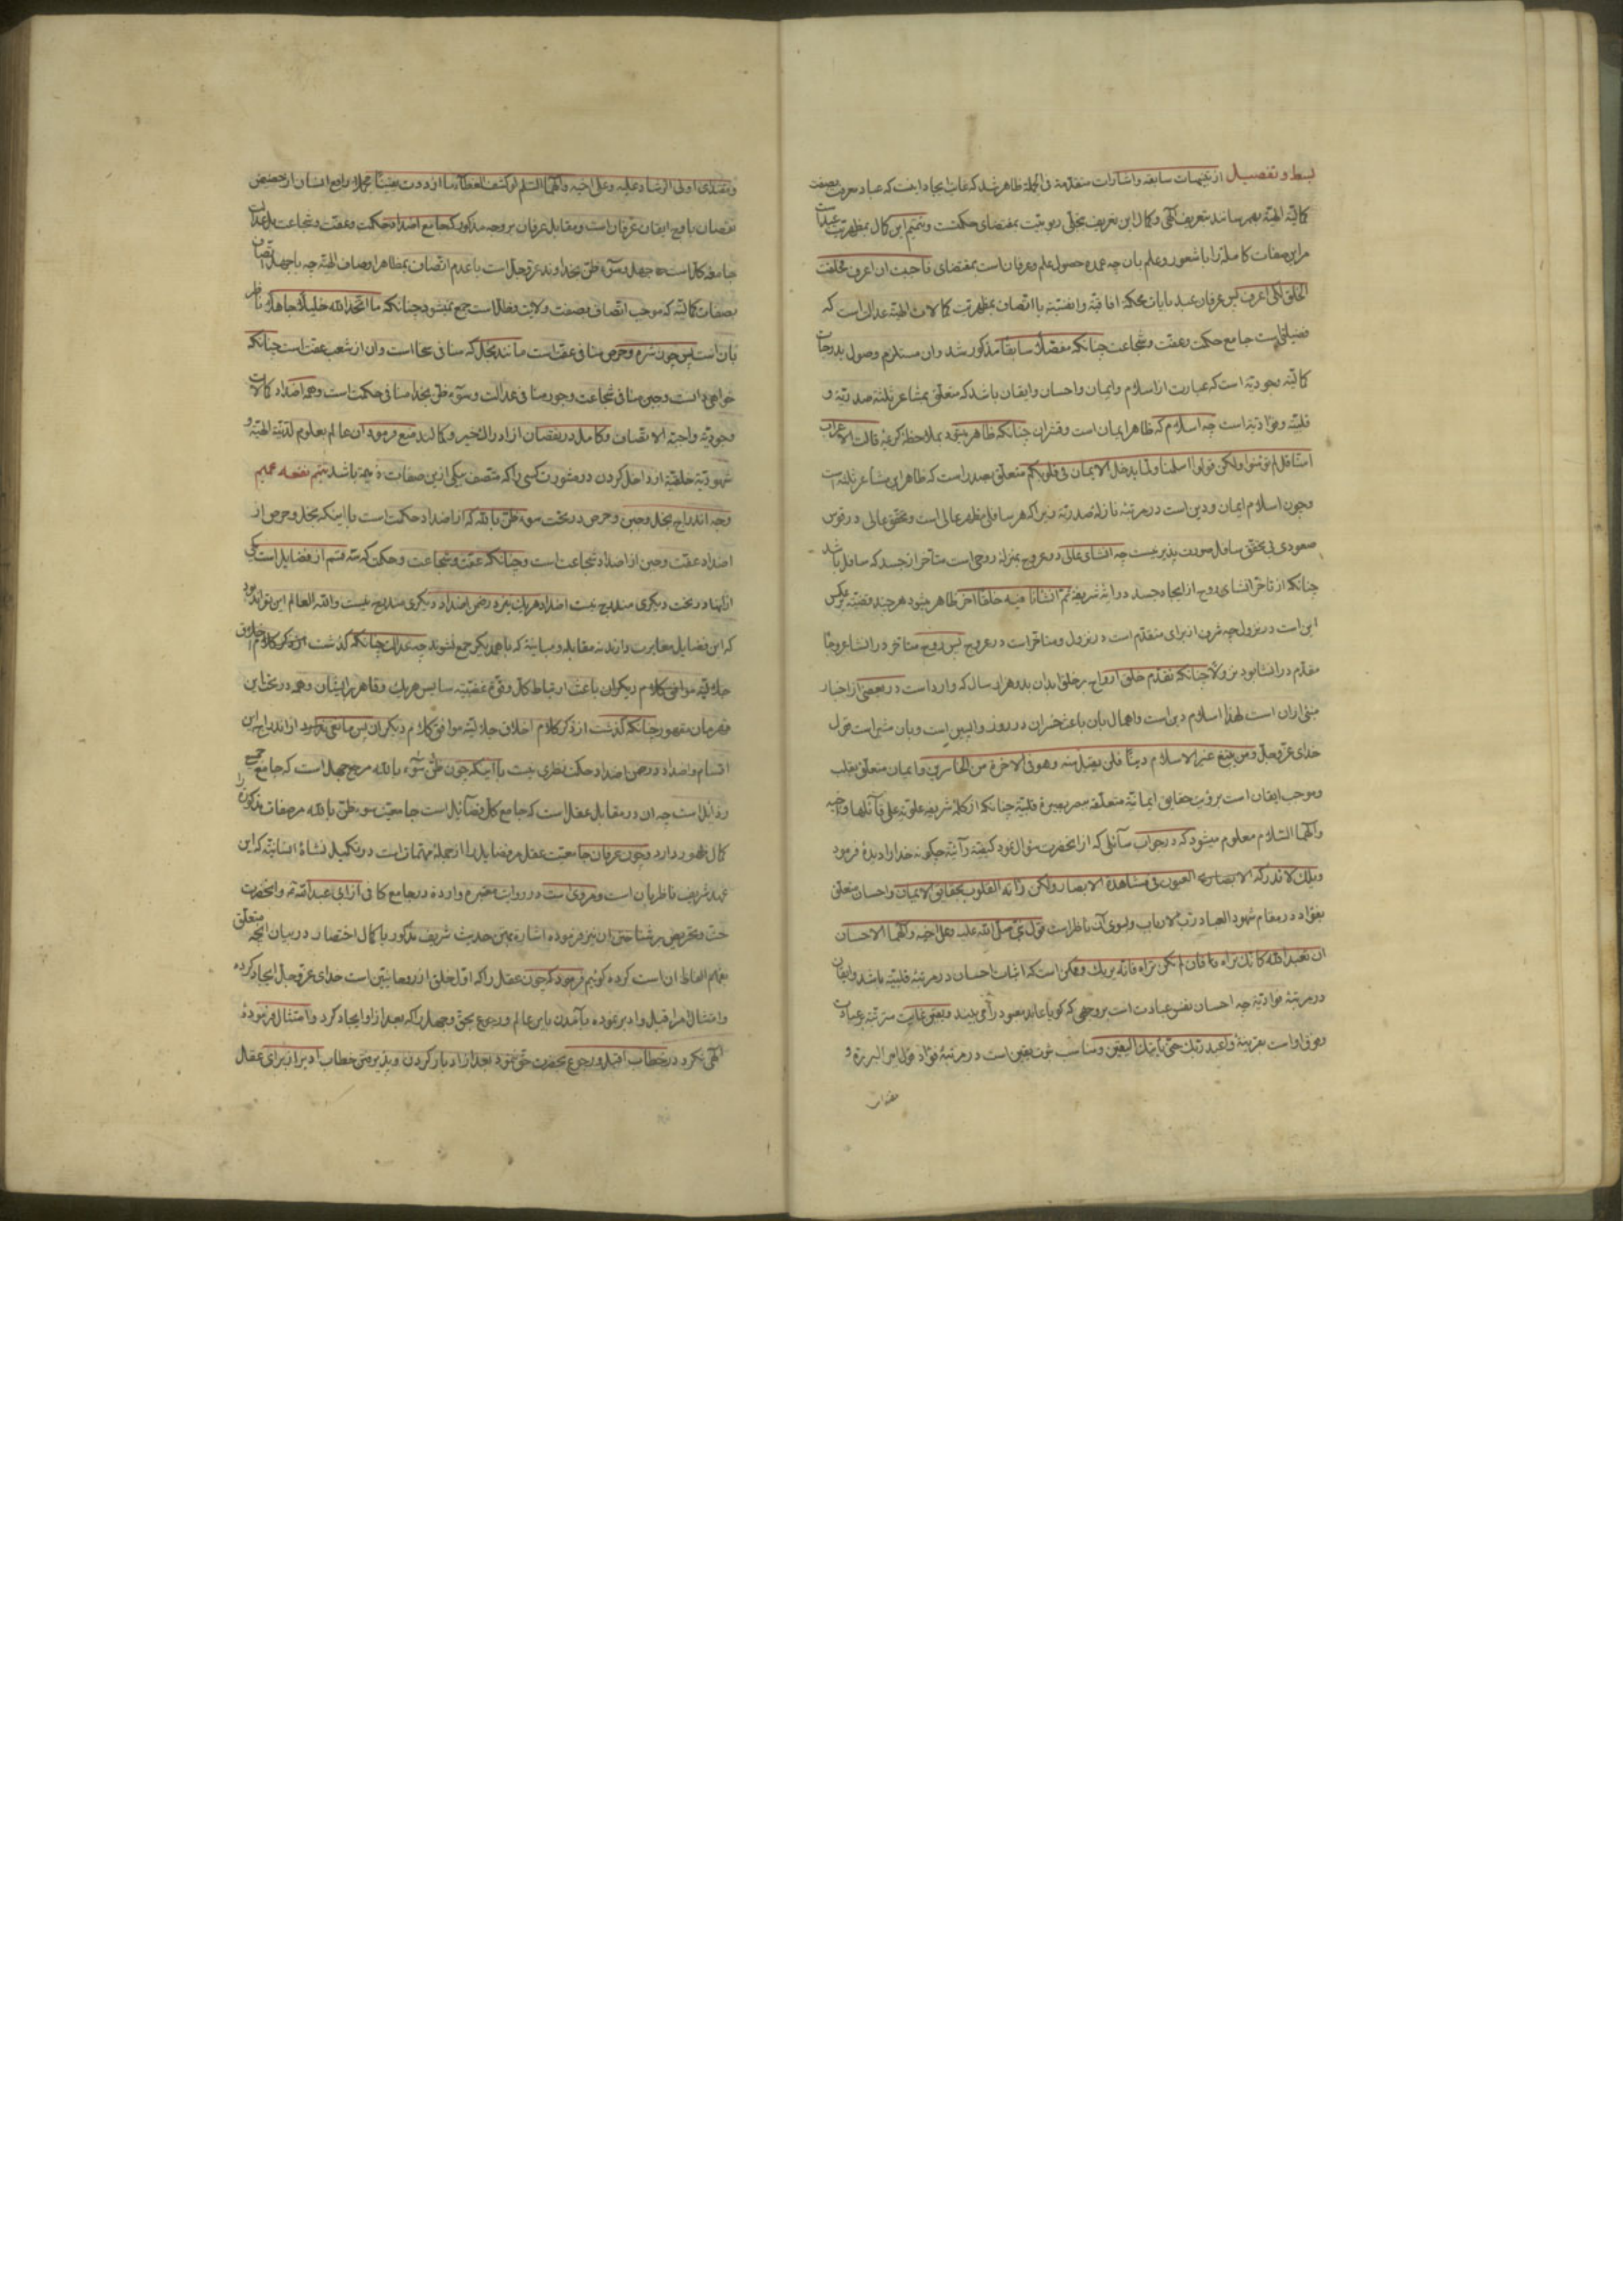 بسط و تفصیل از تنبیهات سابقه و اشارات متقدمة فی الجملة ظاهر شد که غایت ایجاد اینست که عباد معرفت بصفت
کمالیّه الهیّه بهم رسانند بتعریف الهی و کمال این تعریف بتجلّی ربوبیّت بمقتضای حکمتست و تتمیم این کمال بمظهریّت عبدات
مر این صفات کامله را با شعور و علم بان چه عمده حصول علم و عرفان است بمقتضای فاحببت ان اعرف فخلقت
الخلق لکی اعرف پس عرفان عبد بایات محکمۀ افاقیّه و انفسیّه با اتصاف بمظهریّت کمالات الهیّه عدالت است که
فضیلتیست جامع حکمت و عفّت و شجاعت چنانکه مفصّلاً سابقاً مذکور شد و ان مستلزم وصول بدرجات
کمالیّه وجودیّه است که عبارت از اسلام و ایمان و احسان و ایقان باشد که متعلّق بمشاعر ثلثۀ صدریّه و
قلبیّه و فؤادیّه است چه اسلام که ظاهر ایمان است و قشر ان چنانکه ظاهر میشود بملاحظۀ کریمۀ قالت الاعراب
امنّا قل لم تؤمنوا ولکن قولوا اسلمنا ولمّا یدخل الایمان فی قلوبکم متعلّق بصدر است که ظاهر این مشاعر ثلثه است
و چون اسلام ایمان و دین است در مرتبۀ نازلۀ صدریّه زیرا که هر سافلی مظهر عالی است و تحقق عالی در قوس
صعودی بی تحقق سافل صورت پذیر نیست چه انشای عالی در عروج بمنزلۀ روحی است متأخر از جسد که سافل باشد
چنانکه از تأخر انشای روح از ایجاد جسد در آیۀ شریفۀ ثم انشأناه خلقاً اخر ظاهر میشود هر چند قضیّه برعکس
این است در نزول چه شرف از برای متقدّم است در نزول و متأخر است در عروج پس روح متأخر در انشا عروجاً
مقدّم در انشا بود نزولاً چنانکه تقدّم خلق ارواح بر خلق ابدان بدو هزار سال که وارد است در بعضی از اخبار
مبنی از ان است لهذا اسلام دین است و اهمال بان باعث خسران در روز واپسین است و بان مشیر است قول
خدای عزّ و جلّ ومن یبتغ غیر الاسلام دیناً فلن یقبل منه وهو فی الاخرة من الخاسرین و ایمان متعلّق بقلب
و موجب ایقان است برؤیت حقایق ایمانیّه متعلّقه ببصر بصیرة قلبیّه چنانکه از کلمۀ شریفه علویّه علی قائلها واخیه
وآلهما السّلام معلوم میشود که در جواب سائلی که از انحضرت سؤال نمود کیفیّة رأیته چگونه خدا را دیدۀ فرمود
ویلک لا تدرکه الابصار العیون فی مشاهدة الابصار ولکن رأته القلوب بحقایق الایمان و احسان متعلّق
بفؤاد در مقام شهود العباد ربّ الارباب و بسوی ان ناظر است قول نبی صلّی الله علیه وعلی اخیه وآلهما الاحسان
ان تعبد الله کانّک تراه فان لم تکن تراه فانّه یریک و ممکن است که اثبات احسان در مرتبۀ قلبیّه باشد و ایقان
در مرتبۀ فؤادیّه چه احسان نفس عبادت است بروجهی که کویا عابد معبود را می بیند و یقین غایت مترتّبه بر عبادت
و فوق او است بقرینۀ واعبد ربّک حتی یأتیک الیقین و مناسب ثبوت یقین است در مرتبۀ فؤاد قول امیر البررة و
مقتدای
و مقتدی اولی الرشاد علیه وعلی اخیه وآلهما السّلم لو کشف الغطاء ما ازددت یقیناً مجملاً رافع انسان از حضیض
نقصان باوج ایقان عرفان است و مقابل عرفان بروجه مذکور که جامع اضداد حکمت و عفّت و شجاعت
جامعۀ کل است جهل و سوء ظنّ بخداوند عزّ و جلّ است با عدم اتّصاف بمظاهر اوصاف الهیّه چه با جهل اتّصاف
بصفات کمالیّه که موجب اتّصاف بصفت ولایت و فعال است جمع نمیشود چنانکه ما اتّخذ الله خلیلاً جاهلاً ناظر
بان است پس چون شره و حرص منافی عفّت است مانند بخل که منافی سخا است و ان از شعب عفّت است چنانکه
خواهی دانست و جبن منافی شجاعت و جور منافی عدالت و سوء ظنّ بخدا منافی حکمت است و همه اضداد کمالات
وجودیّه واجبة الاتصاف و کامل در نقصان از ادراک خیر و کمالند منع فرمود ان عالم بعلوم لدنیّه الهیّه و
شهودیّه خلقیّه از داخل کردن در مشورت کسی را که متّصف بیکی از این صفات ذمیمه باشد تتمیم نفعه عمیم
وجه اندراج بخل و جبن و حرص در تحت سوء ظنّ بالله که از اضداد حکمت است با اینکه بخل و حرص از
اضداد عفّت و جبن از اضداد شجاعت است و چنانکه عفّت و شجاعت و حکمت که سه قسم از فضایل است یکی
از انها در تحت دیکری مندرج نیست اضداد هر یک نیز در ضمن اضداد دیکری مندرج نیست والله العالم این تواند بود
که این فضایل مغایرت دارند نه مقابله و مباینة که با همدیکر جمع نشوند چه عدالت چنانکه گذشت از ذکر کلام اخلاق
جلالیّه موافق کلام دیکران باعث ارتباط کل و قوّۀ غضبیّه سایس هر یک و قاهر بر ایشان و همه در تحت این
قهرمان مقهور چنانکه گذشت از ذکر کلام اخلاق جلالیّه موافق کلام دیکران پس مانعی نبود از اندراج این
اقسام و اضداد در ضمن اضداد حکمت نظری نیست با اینکه چون ظنّ سوء بالله مرجع جهل است که جامع جمیع
رذایل است چه ان در مقابل عقل است که جامع کل فضائل است جامعیّت سوء ظنّ بالله مر صفات مذکوره را
کمال ظهور دارد و چون عرفان جامعیّت عقل مر فضایل را از جملۀ مهتمات است در تکمیل نشاۀ انسانیّه که این
عهد شریف ناظر بان است و مروی است در روایت معتبره وارده در جامع کافی از ابی عبدالله ع و انحضرت
حثّ و تحریص بر شناختن ان نیز فرموده اشاره بمتن حدیث شریف مذکور با کمال اختصار در بیان انچه متعلّق
بفهم الفاظ ان است کرده کوئیم فرمود که چون عقل را که اول خلق از روحانیین است خدای عزّ و جلّ ایجاد کرده
و امتثال امر اقبل و ادبر نموده بآمدن باین عالم و رجوع بحق و جهل را که بعد از او ایجاد کرد و امتثال فرمودۀ
الهی نکرد در خطاب اقبل و رجوع بحضرت حق ننمود بعد از ادبار کردن و پذیرفتن خطاب ادبر از برای عقل